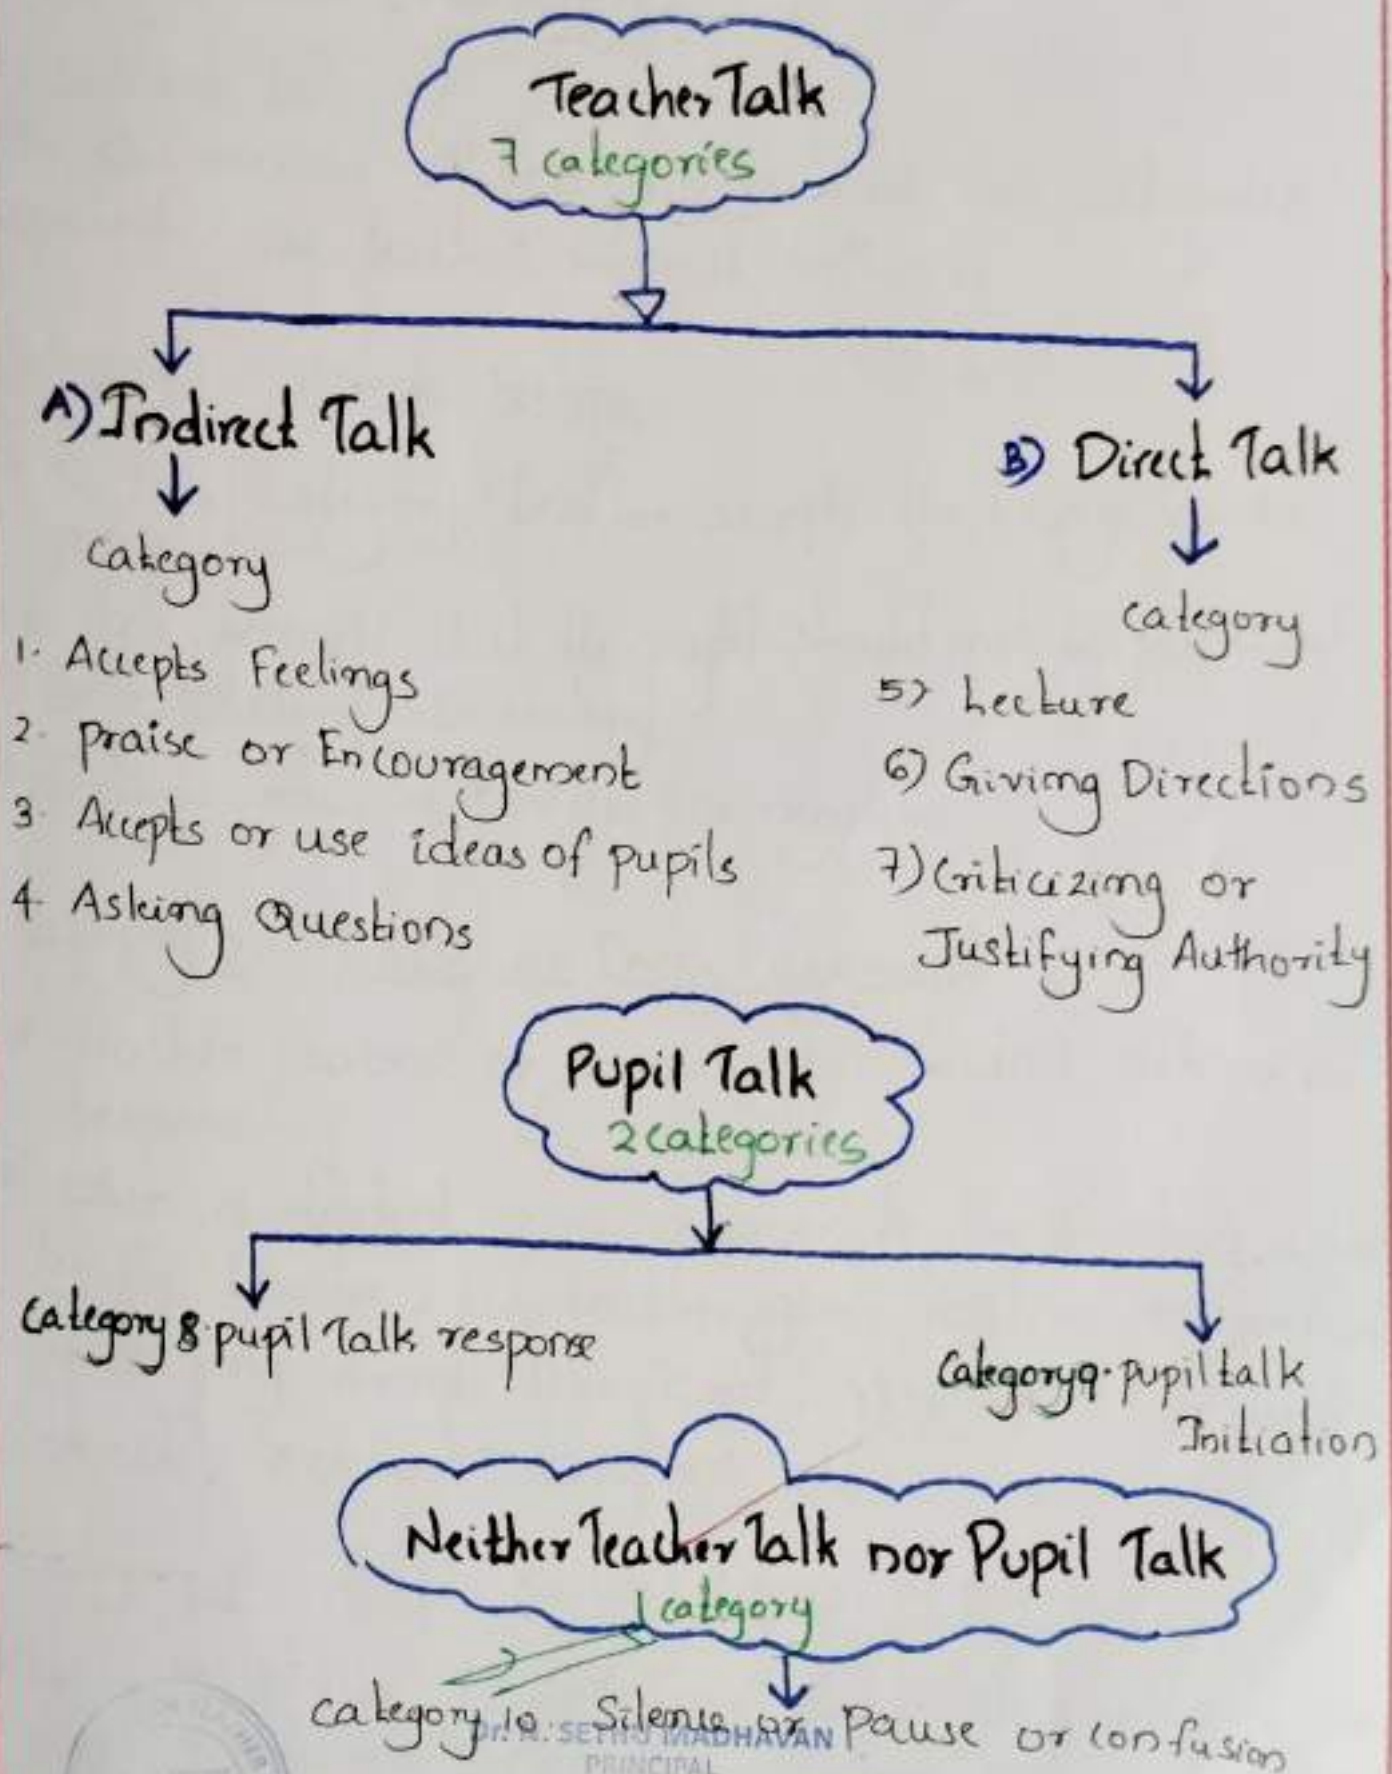 Teacher Talk
7 categories
A) Indirect Talk
B) Direct Talk
Category
category
1. Accepts Feelings
2. praise or Encouragement
3. Accepts or use ideas of pupils
4. Asking Questions
5) Lecture
6) Giving Directions
7) Criticizing or
Justifying Authority
Pupil Talk
2 categories
Category 8. pupil Talk response
Category 9. pupil talk
Initiation
Neither Teacher Talk nor Pupil Talk
1 category
category 10 Silence or Pause or confusion
SETHU MADHAVAN
PRINCIPAL